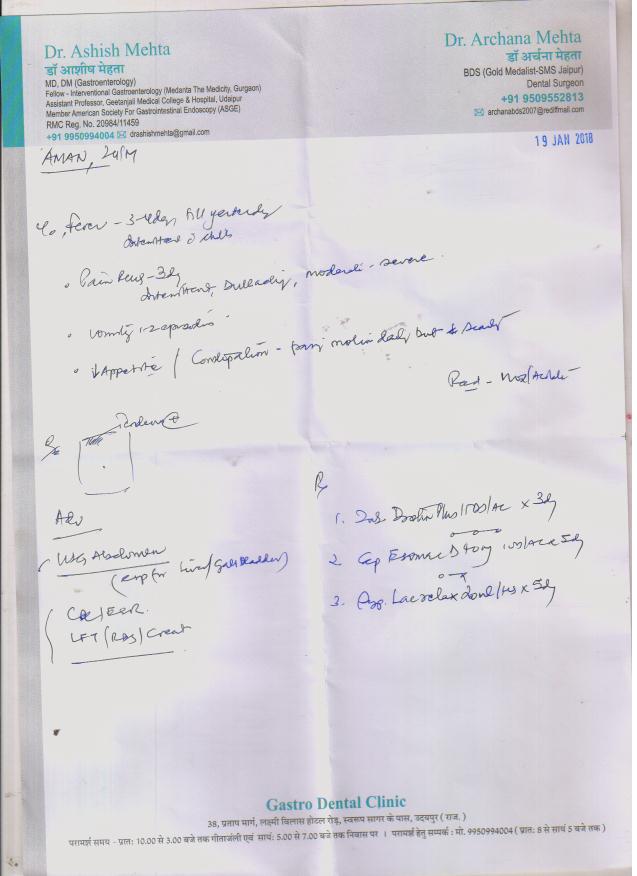 Dr. Ashish Mehta
डॉ आशीष मेहता
MD, DM (Gastroenterology)
Fellow - Interventional Gastroenterology (Medanta The Medicity, Gurgaon)
Assistant Professor, Geetanjali Medical College & Hospital, Udaipur
Member American Society For Gastrointestinal Endoscopy (ASGE)
RMC Reg. No. 20984/11459
+91 9950994004 drashishmehta@gmail.com
Dr. Archana Mehta
डॉ अर्चना मेहता
BDS (Gold Medalist-SMS Jaipur)
Dental Surgeon
+91 9509552813
archanabds2007@rediffmail.com
19 JAN 2018
AMAN, 24/M
c/o, Fever - 3-4day, till yesterday
Intermittent
Pain - 3d
Intermittent, , moderate - severe
Vomity 1-2 episodes
↓Appetite / Constipation - motion daily but
R
Adv
USG Abdomen
(esp for Liver/Gall Bladder)
CBC/ESR
LFT/RBS/Creat
1. Tab. Plus/ /AC x 3d
2. Cap D 40mg /AC x 5d
3. Syp. Lacrelax 20ml/HS x 5d
Gastro Dental Clinic
38, प्रताप मार्ग, लक्ष्मी विलास होटल रोड़, स्वरूप सागर के पास, उदयपुर ( राज. )
परामर्श समय - प्रातः 10.00 से 3.00 बजे तक गीतांजली एवं सायं: 5.00 से 7.00 बजे तक निवास पर । परामर्श हेतु सम्पर्क : मो. 9950994004 ( प्रातः 8 से सायं 5 बजे तक )